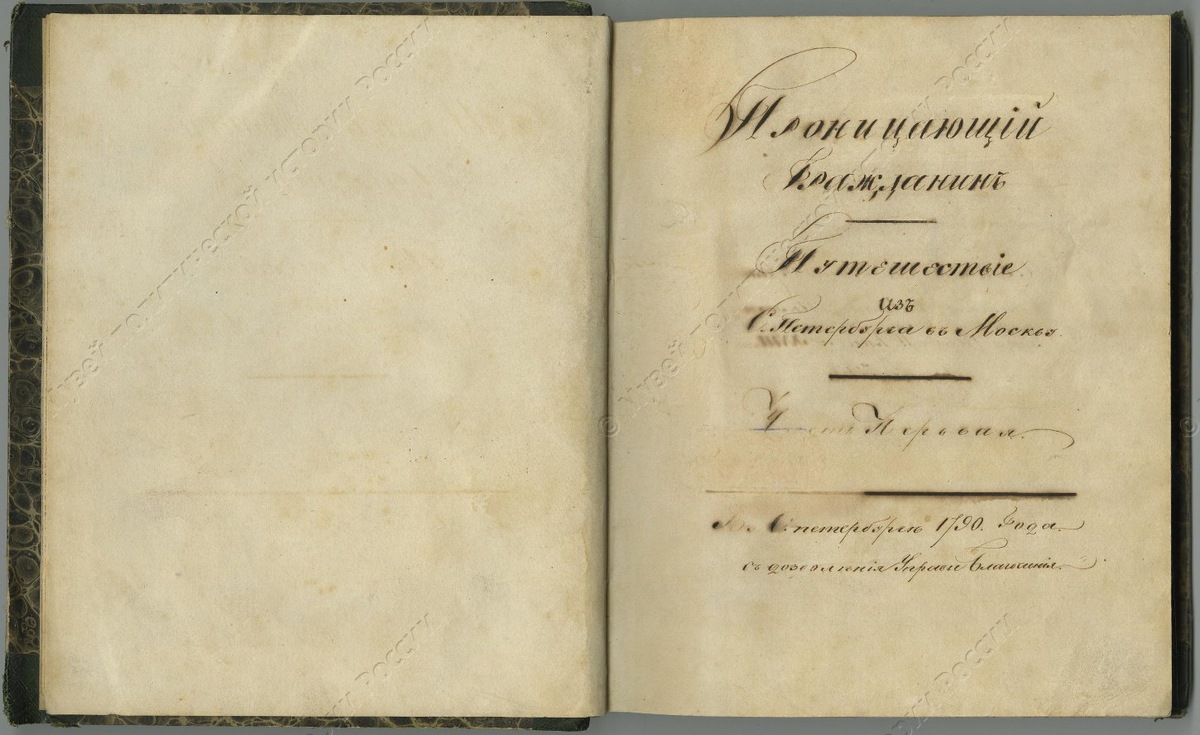 Проницающій
Гражданинъ
Путешествіе
изъ
С.Петербурга въ Москву.
Часть Первая.
Въ С.петербургѣ 1790. Года.
съ дозволенія Управы Благочинія.
© Музей политической истории России